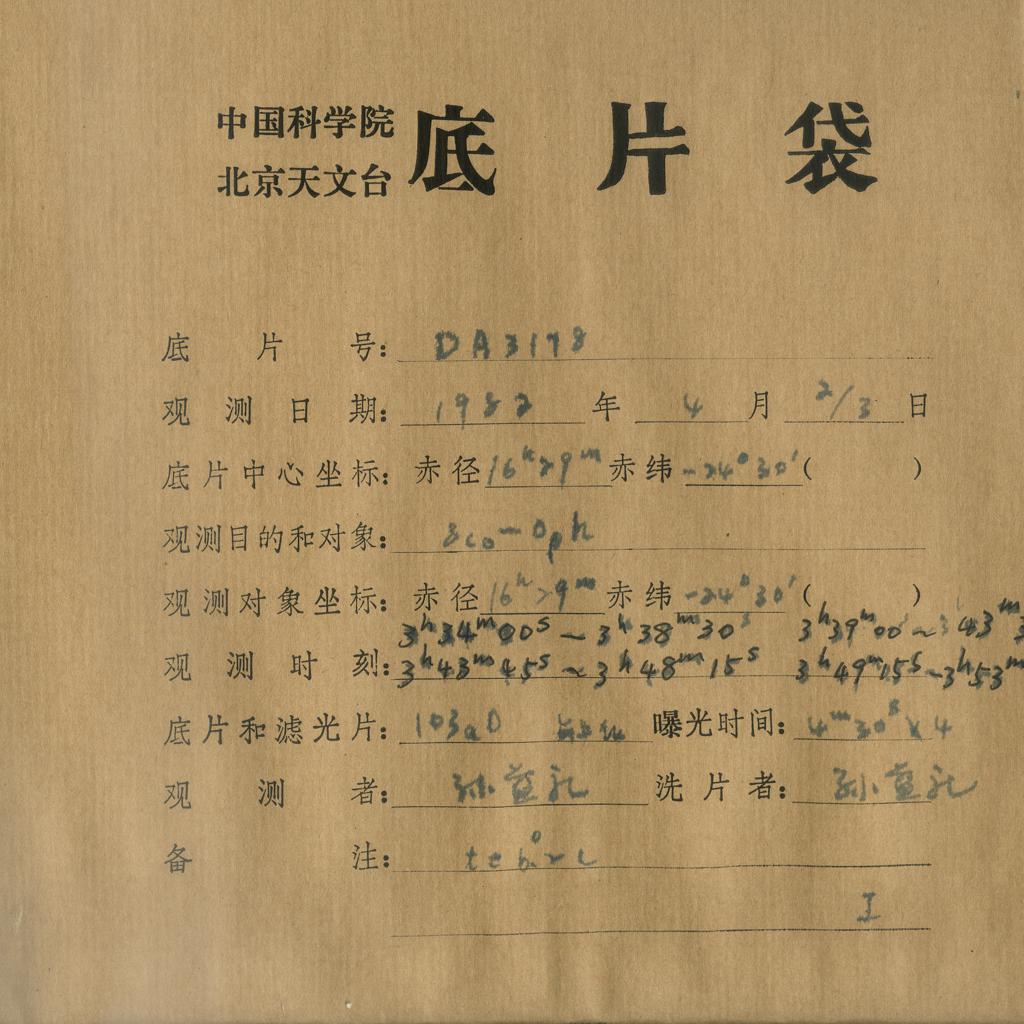 中国科学院
北京天文台 底片袋
底片号: DA3178
观测日期: 1982 年 4 月 2/3 日
底片中心坐标: 赤径 16ʰ29ᵐ 赤纬 -24°30′ ( )
观测目的和对象: Sco-Oph
观测对象坐标: 赤径 16ʰ29ᵐ 赤纬 -24°30′ ( )
3ʰ34ᵐ00ˢ~3ʰ38ᵐ30ˢ 3ʰ39ᵐ00ˢ~3ʰ43ᵐ3
观测时刻: 3ʰ43ᵐ45ˢ~3ʰ48ᵐ15ˢ 3ʰ49ᵐ15ˢ~3ʰ53ᵐ
底片和滤光片: 103aD 曝光时间: 4ᵐ30ˢ×4
观测者: 孙 洗片者: 孙
备注:
I